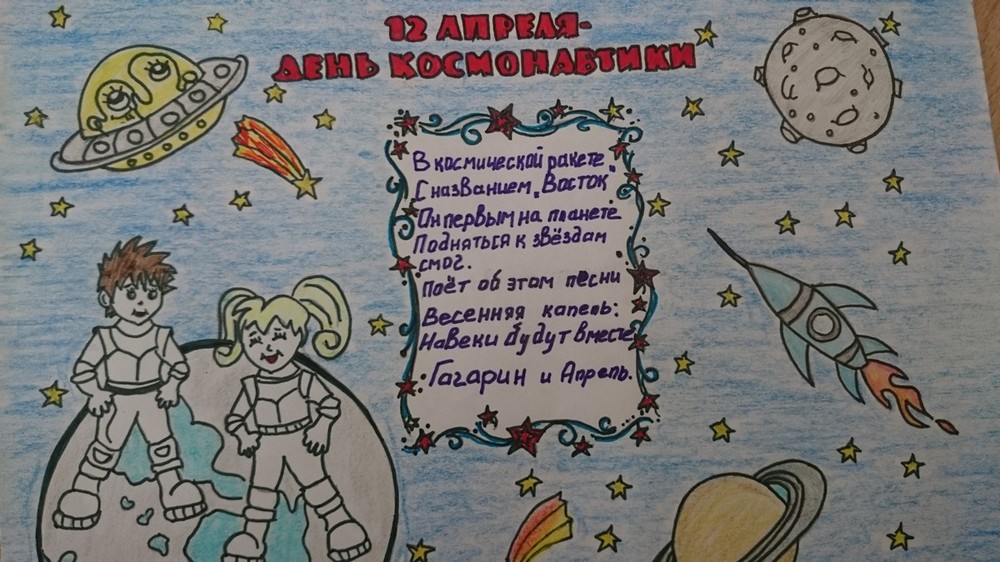 12 АПРЕЛЯ-
ДЕНЬ КОСМОНАВТИКИ
В космической ракете
С названием „Восток"
Он первым на планете
Подняться к звёздам
смог.
Поёт об этом песни
Весенняя капель:
Навеки будут вместе
Гагарин и Апрель.